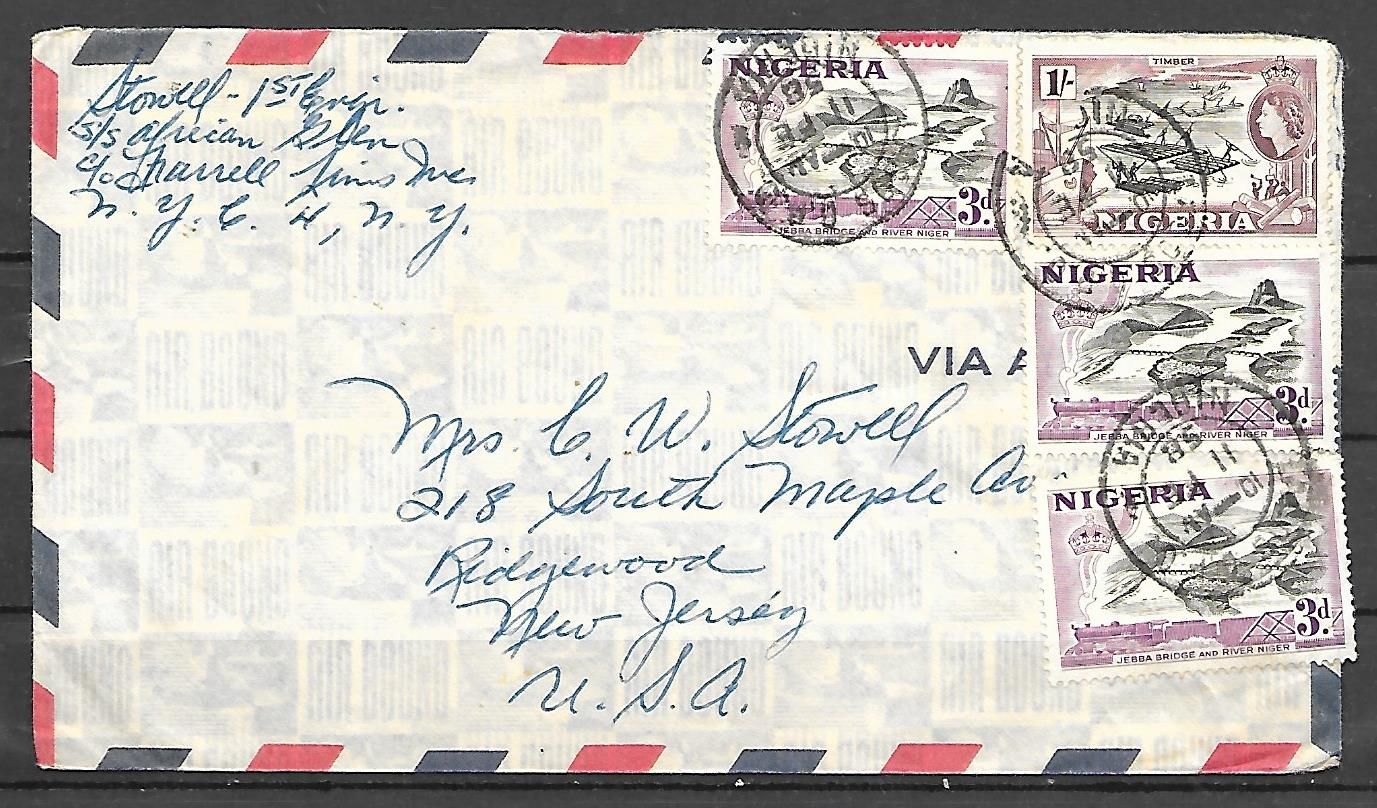 Stowell - 1st Engr.
S/S African Glen
c/o Farrell Lines Inc
N. Y. C. 4, N. Y.
NIGERIA
3d.
JEBBA BRIDGE AND RIVER NIGER
TIMBER
1/-
NIGERIA
NIGERIA
3d.
JEBBA BRIDGE AND RIVER NIGER
VIA A
Mrs. C. W. Stowell
218 South Maple Ave
Ridgewood
New Jersey
U. S. A.
NIGERIA
3d.
JEBBA BRIDGE AND RIVER NIGER